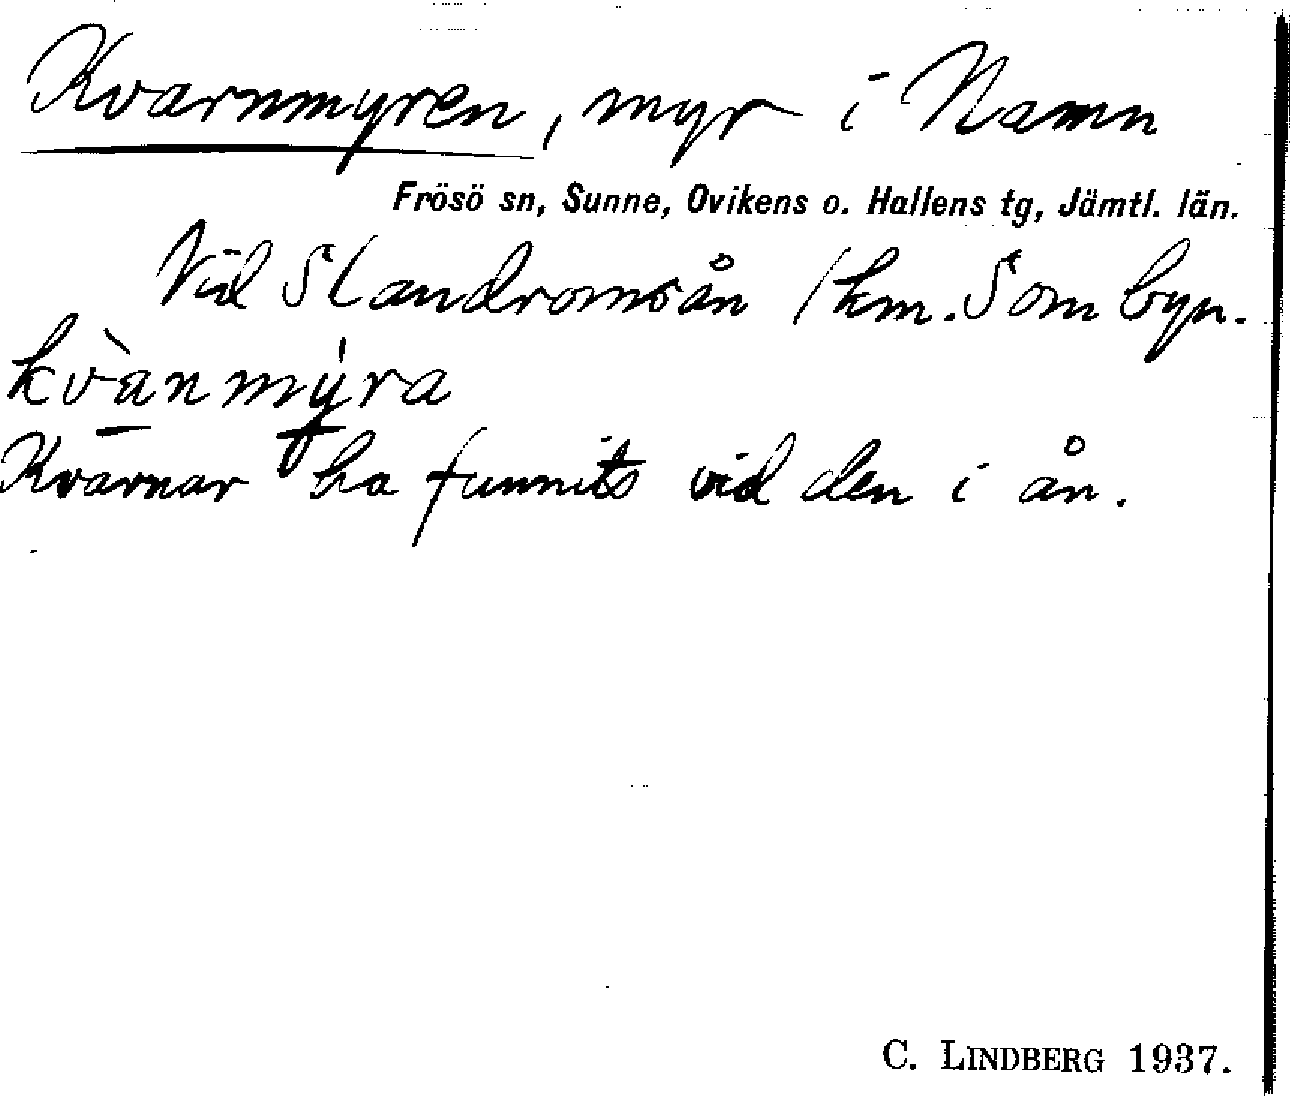 Kvarnmyren, myr i Namn
Frösö sn, Sunne, Ovikens o. Hallens tg, Jämtl. län.
Vid Slandromsån 1 km. S om byn.
kvànmýra
Kvarnar ha funnits vid den i ån.
C. LINDBERG 1937.